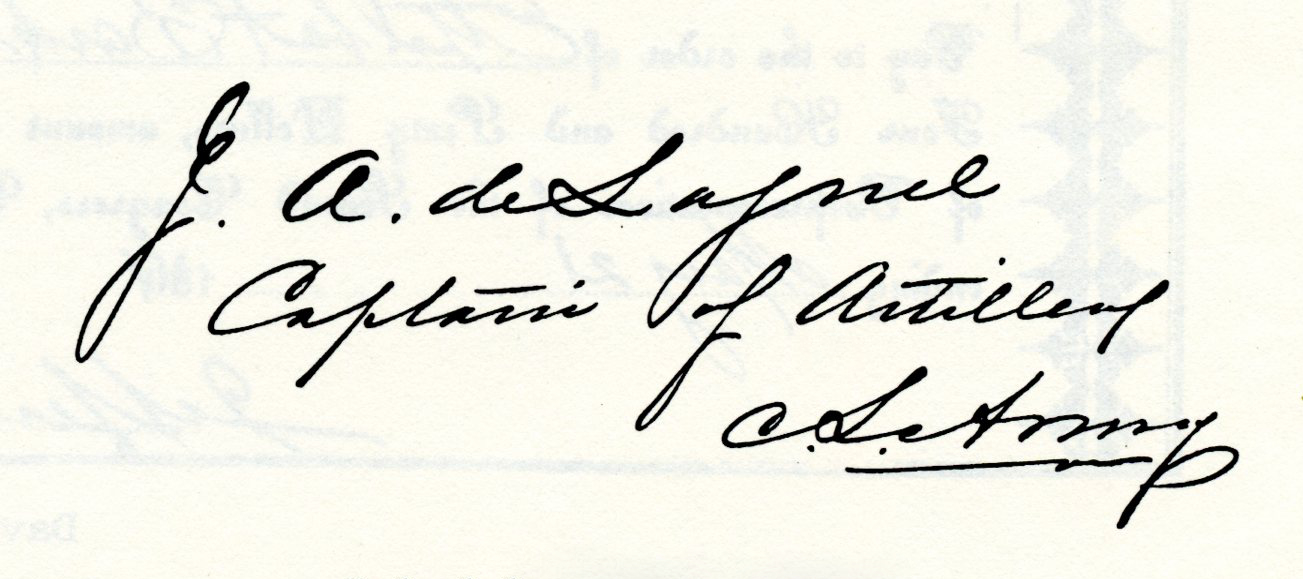 J. A. de Lagnel
Captain of Artillery
C. S. Army